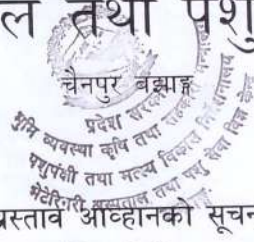 ल तथा पशु
चैनपुर बझाङ्ग
प्रदेश सरकार
भूमि व्यवस्था कृषि तथा सहकारी
पशुपंक्षी तथा मत्स्य विकास निर्देशनालय
भेटेरिनरी अस्पताल तथा पशु सेवा विज्ञ केन्द्र
प्रस्ताव आव्हानको सूचन